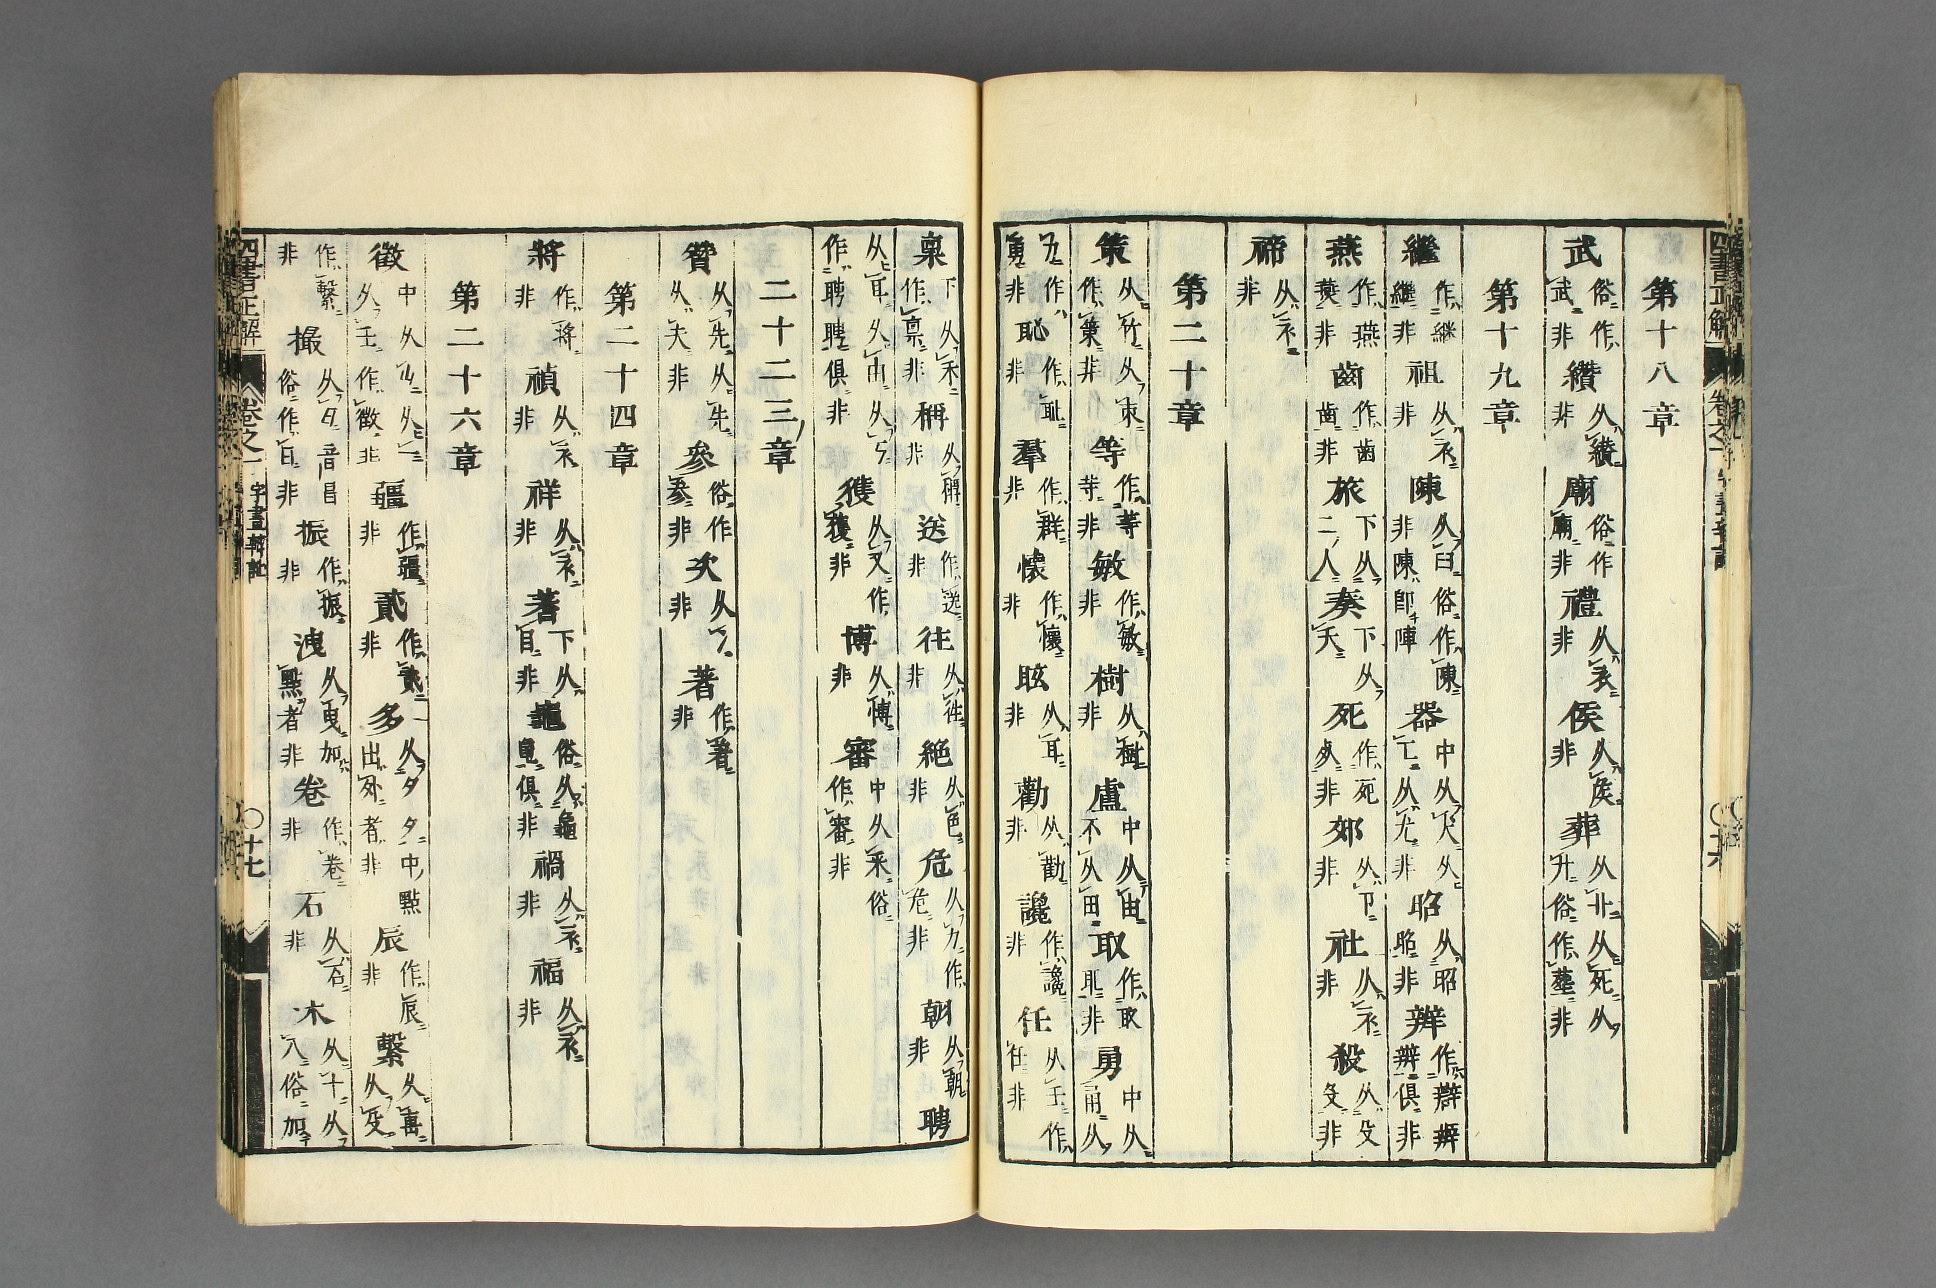 第十八章
武 俗作武非 纘 从纉非 廟 俗作廟非 禮 从衣非 侯 从矦非 葬 从廾从死从廾俗作塟非
第十九章
繼 作継継非 祖 从衣非 陳 从臼俗作陳非陳即陣 器 中从犬从亡从尤非 昭 从昭昭非 辨 作辯辨辨俱非
燕 作燕燕非 齒 作歯歯非 旅 下从二人 奏 下从夭 死 作死非 郊 从卩非 社 从衣非 殺 从殳非
禘 从衣非
第二十章
策 从竹从朿作筞非 等 作等等非 敏 作敏非 樹 从樹非 盧 中从由不从田 取 作取耴非 勇 中从甬从
力作勇非 恥 作耻非 羣 作群非 懷 作懐非 眩 从耳非 勸 从勧非 讒 作讒非 任 从壬作任非
稟 下从禾作禀非 稱 从稱非 送 作送非 往 从徃非 絕 从色非 危 从力作危非 朝 从朝非 聘
从耳从由从丂作聘聘俱非 獲 从又作獲非 博 从愽非 審 中从釆俗作審非
二十二三章
贊 从先从先从夫非 參 俗作参非 次 从冫非 著 作着非
第二十四章
將 作将非 禎 从衣非 祥 从衣非 蓍 下从目非 龜 俗从龜皃俱非 禍 从衣非 福 从衣非
第二十六章
徵 中从山从一从壬作徴非 疆 作疆非 貳 作貳非 多 从夕夕中點出外者非 辰 作辰非 繫 从軎从殳
作繋非 撮 从冃音昌俗作曰非 振 作振非 洩 从曳加點者非 卷 作巻非 石 从石非 木 从十从八俗加
四書正解 卷之一 字畫辨訛 〇十六
四書正解 卷之一 字畫辨訛 〇十七